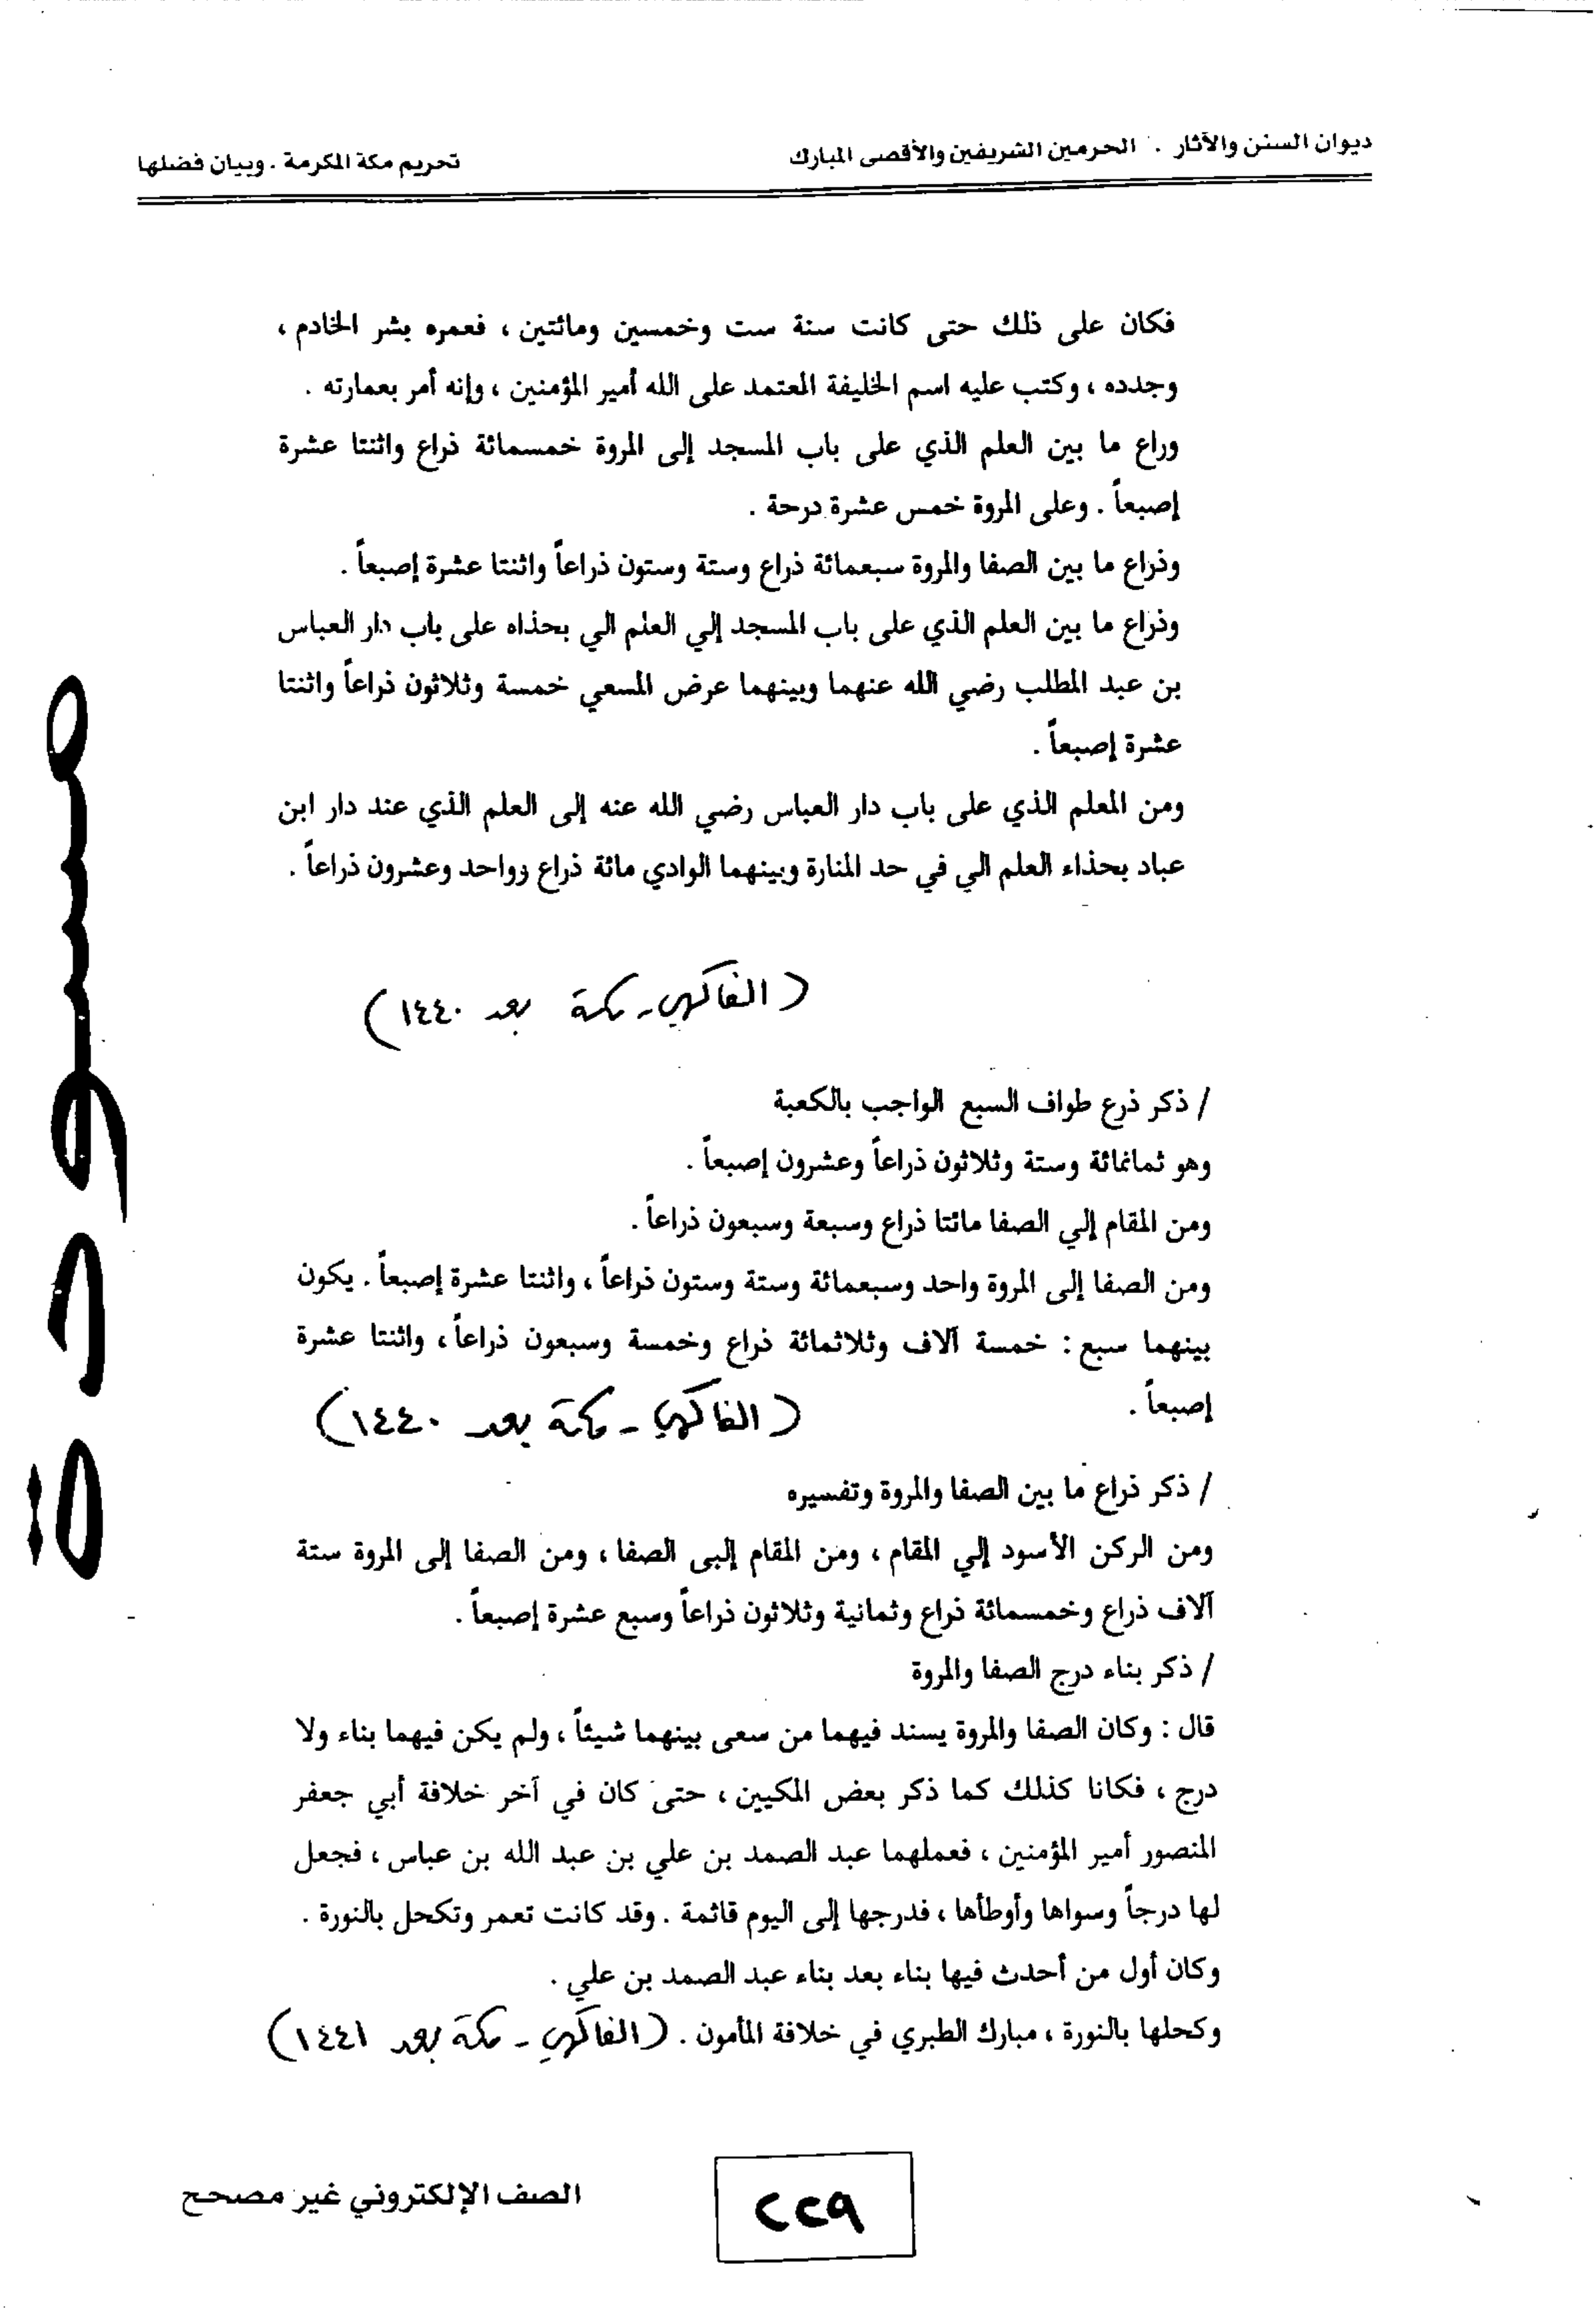 ديوان السنن والآثار . الحرمين الشريفين والأقصى المبارك
تحريم مكة المكرمة . وبيان فضلها
فكان على ذلك حتى كانت سنة ست وخمسين ومائتين ، فعمره بشر الخادم ،
وجدده ، وكتب عليه اسم الخليفة المعتمد على الله أمير المؤمنين ، وإنه أمر بعمارته .
وراع ما بين العلم الذي على باب المسجد إلى المروة خمسمائة ذراع واثنتا عشرة
إصبعاً . وعلى المروة خمس عشرة درحة .
وذراع ما بين الصفا والمروة سبعمائة ذراع وستة وستون ذراعاً واثنتا عشرة إصبعاً .
وذراع ما بين العلم الذي على باب المسجد إلي العلم الي بحذاه على باب دار العباس
بن عبد المطلب رضي الله عنهما وبينهما عرض المسعي خمسة وثلاثون ذراعاً واثنتا
عشرة إصبعاً .
ومن المعلم الذي على باب دار العباس رضي الله عنه إلى العلم الذي عند دار ابن
عباد بحذاء العلم الي في حد المنارة وبينهما الوادي مائة ذراع وواحد وعشرون ذراعاً .
( الفاكهي - مكة بعد ١٤٤٠ )
/ ذكر ذرع طواف السبع الواجب بالكعبة
وهو ثمانمائة وستة وثلاثون ذراعاً وعشرون إصبعاً .
ومن المقام إلي الصفا مائتا ذراع وسبعة وسبعون ذراعاً .
ومن الصفا إلى المروة واحد وسبعمائة وستة وستون ذراعاً ، واثنتا عشرة إصبعاً . يكون
بينهما سبع : خمسة آلاف وثلاثمائة ذراع وخمسة وسبعون ذراعاً ، واثنتا عشرة
إصبعاً . ( الفاكهي - مكة بعد ١٤٤٠ )
/ ذكر ذراع ما بين الصفا والمروة وتفسيره
ومن الركن الأسود إلي المقام ، ومن المقام إلبى الصفا ، ومن الصفا إلى المروة ستة
آلاف ذراع وخمسمائة ذراع وثمانية وثلاثون ذراعاً وسبع عشرة إصبعاً .
/ ذكر بناء درج الصفا والمروة
قال : وكان الصفا والمروة يسند فيهما من سعى بينهما شيئاً ، ولم يكن فيهما بناء ولا
درج ، فكانا كذلك كما ذكر بعض المكيين ، حتى كان في آخر خلافة أبي جعفر
المنصور أمير المؤمنين ، فعملهما عبد الصمد بن علي بن عبد الله بن عباس ، فجعل
لها درجاً وسواها وأوطأها ، فدرجها إلى اليوم قائمة . وقد كانت تعمر وتكحل بالنورة .
وكان أول من أحدث فيها بناء بعد بناء عبد الصمد بن علي .
وكحلها بالنورة ، مبارك الطبري في خلافة المأمون . ( الفاكهي - مكة بعد ١٤٤١ )
٢٢٩
الصف الإلكتروني غير مصحح
مسودة